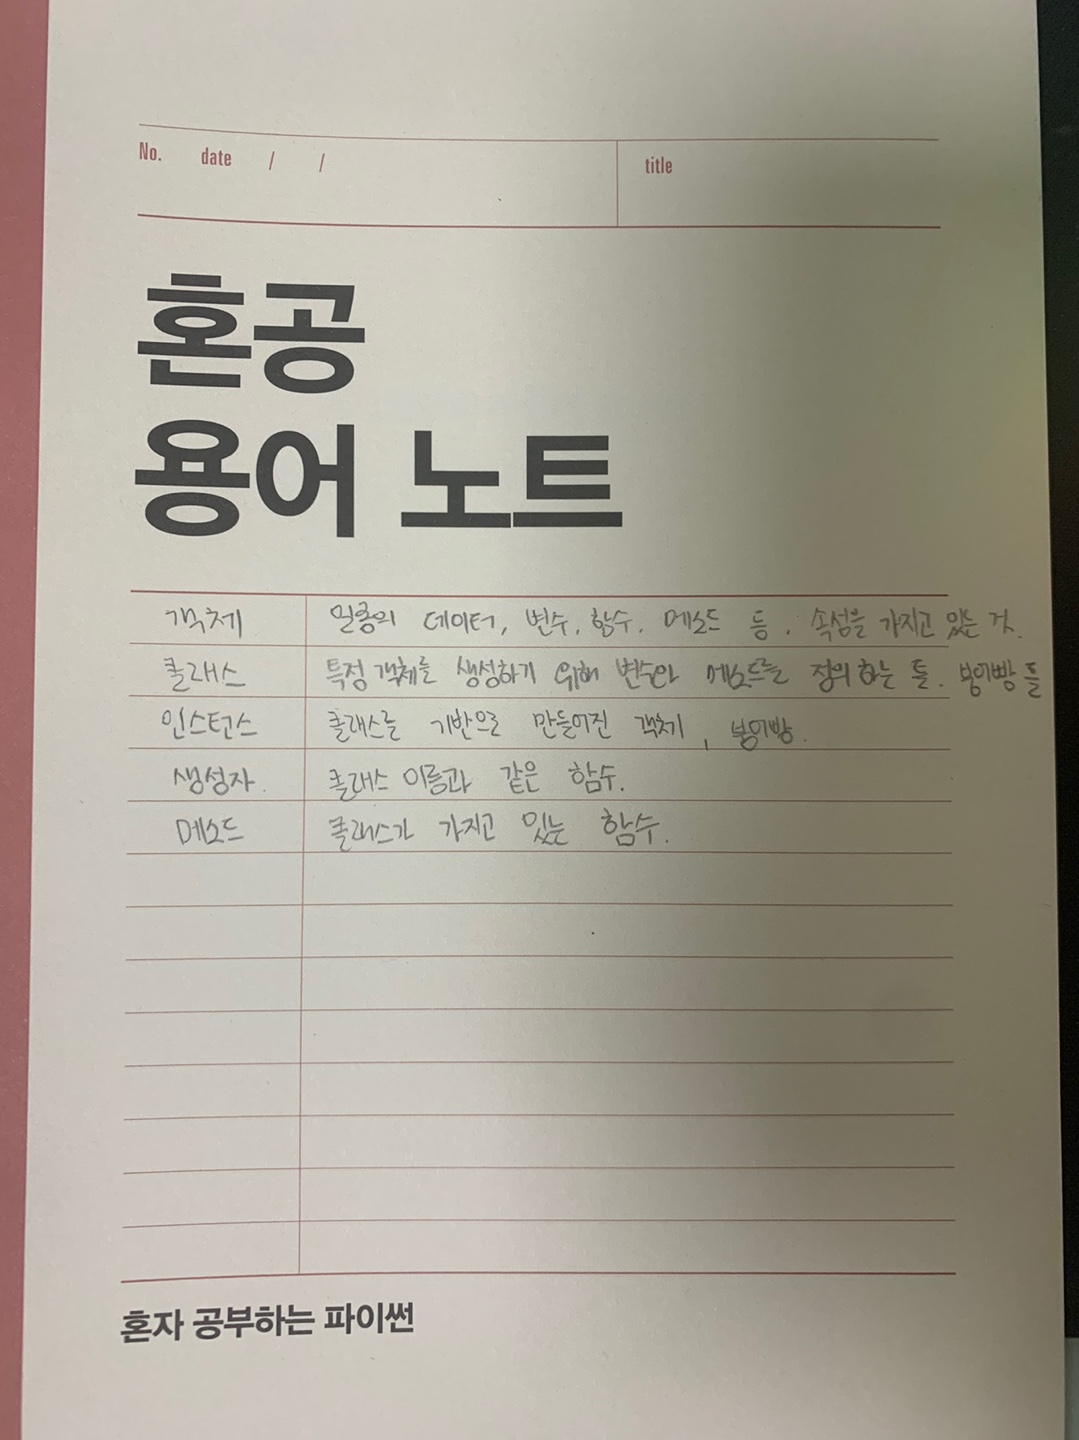 No. date / / title
혼공
용어 노트
객체 일종의 데이터, 변수, 함수, 메소드 등, 속성을 가지고 있는 것.
클래스 특정 객체를 생성하기 위해 변수와 메소드를 정의하는 틀. 붕어빵 틀
인스턴스 클래스를 기반으로 만들어진 객체, 붕어빵.
생성자. 클래스 이름과 같은 함수.
메소드 클래스가 가지고 있는 함수.
혼자 공부하는 파이썬